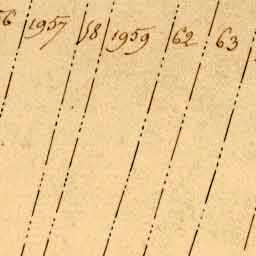 6 1957 58 1959 62 63